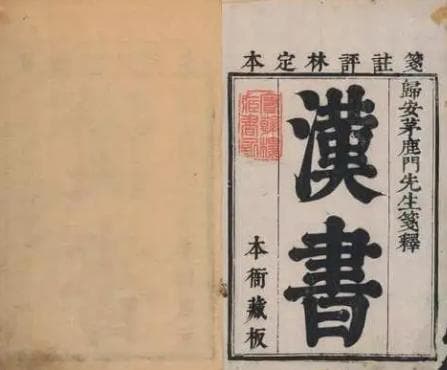 箋註評林定本
歸安茅鹿門先生箋釋
漢書
本衙藏板